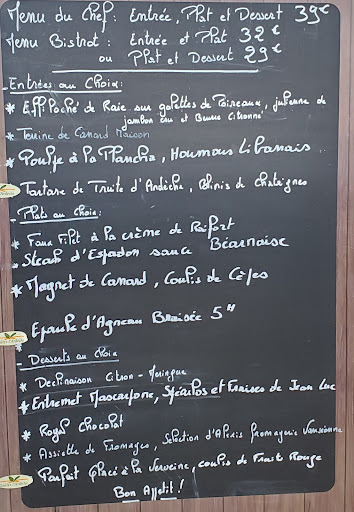 Menu du Chef : Entrée, Plat et Dessert 39€
Menu Bistrot : Entrée et Plat 32€
ou Plat et Dessert 29€
- Entrées au Choix :
* Effiloché de Raie sur galettes de Poireaux, julienne de
jambon cru et Beurre Citronné
* Terrine de Canard Maison
* Poulpe à la Plancha, Houmous Libanais
* Tartare de Truite d'Ardèche, Blinis de Chataignes
- Plats au Choix :
* Faux Filet à la crème de Raifort
* Steak d'Espadon sauce Béarnaise
* Magret de Canard, Coulis de Cèpes
* Epaule d'Agneau Braisée 5H
- Desserts au Choix
* Déclinaison Citron - Meringue
* Entremet Mascarpone, Spéculos et Fraises de Jean Luc
* Royal Chocolat
* Assiette de Fromages, Selection d'Alexis fromagerie
* Parfait Glacé à la Verveine, coulis de Fruit Rouge
Bon Appétit !